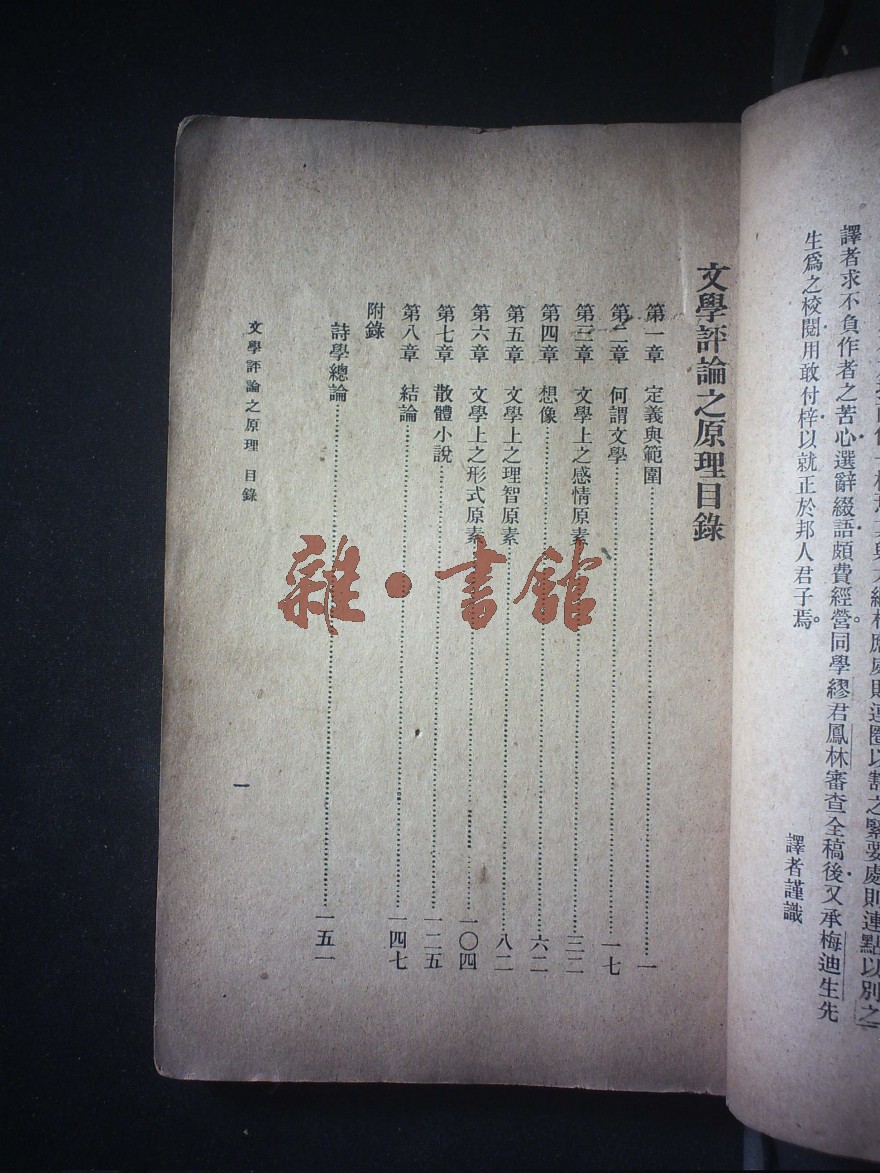 譯者求不負作者之苦心選辭綴語頗費經營。同學繆君鳳林審查全稿後又承梅迪生先
生爲之校閱用敢付梓以就正於邦人君子焉。
譯者謹識
文學評論之原理目錄
第一章　定義與範圍……一
第二章　何謂文學……一七
第三章　文學上之感情原素……三二
第四章　想像……六二
第五章　文學上之理智原素……八二
第六章　文學上之形式原素……一〇四
第七章　散體小說……一二五
第八章　結論……一四七
附錄
詩學總論……一五一
文學評論之原理　目錄
一
雜·書館